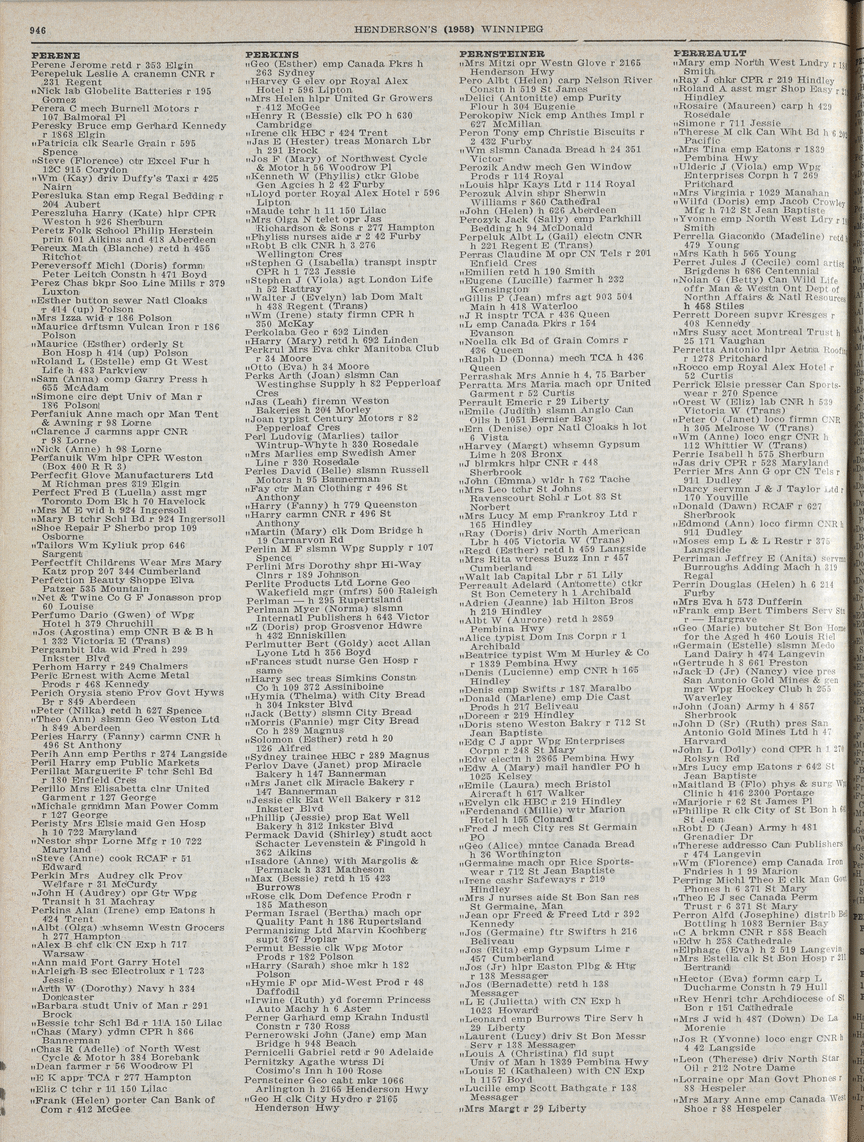 946
HENDERSON'S (1958) WINNIPEG
PERENE
Perene Jerome retd r 353 Elgin
Perepeluk Leslie A cranemn CNR r
231 Regent
„Nick lab Globelite Batteries r 195
Gomez
Perera C mech Burnell Motors r
107 Balmoral Pl
Peresky Bruce emp Gerhard Kennedy
r 1868 Elgin
„Patricia clk Searle Grain r 595
Spence
„Steve (Florence) ctr Excel Fur h
12C 915 Corydon
„Wm (Kay) driv Duffy's Taxi r 425
Nairn
Peresluka Stan emp Regal Bedding r
204 Aubert
Pereszluha Harry (Kate) hlpr CPR
Weston h 926 Sherburn
Peretz Folk School Philip Herstein
prin 601 Aikins and 418 Aberdeen
Pereux Math (Blanche) retd h 455
Ritchot
Pereversoff Michl (Doris) formn
Peter Leitch Constn h 471 Boyd
Perez Chas bkpr Soo Line Mills r 379
Luxton
„Esther button sewer Natl Cloaks
r 414 (up) Polson
„Mrs Izza wid r 186 Polson
„Maurice drftsmn Vulcan Iron r 186
Polson
„Maurice (Esther) orderly St
Bon Hosp h 414 (up) Polson
„Roland L (Estelle) emp Gt West
Life h 483 Parkview
„Sam (Anna) comp Garry Press h
655 McAdam
„Simone circ dept Univ of Man r
186 Polson
Perfaniuk Anne mach opr Man Tent
& Awning r 98 Lorne
„Clarence J carmns appr CNR
r 98 Lorne
„Nick (Anne) h 98 Lorne
Perfanuik Wm hlpr CPR Weston
(Box 400 R R 3)
Perfecfit Glove Manufacturers Ltd
M Richman pres 319 Elgin
Perfect Fred B (Luella) asst mgr
Toronto Dom Bk h 70 Havelock
„Mrs M E wid h 924 Ingersoll
„Mary B tchr Schl Bd r 924 Ingersoll
„Shoe Repair P Sherbo prop 109
Osborne
„Tailors Wm Kyliuk prop 646
Sargent
Perfectfit Childrens Wear Mrs Mary
Katz prop 207 344 Cumberland
Perfection Beauty Shoppe Elva
Patzer 535 Mountain
„Net & Twine Co G F Jonasson prop
60 Louise
Perfumo Dario (Gwen) of Wpg
Hotel h 379 Chruchill
„Jos (Agostina) emp CNR B & B h
1 332 Victoria E (Trans)
Pergambit Ida wid Fred h 299
Inkster Blvd
Perhom Harry r 249 Chalmers
Peric Ernest with Acme Metal
Prods r 468 Kennedy
Perich Orysia steno Prov Govt Hyws
Br r 849 Aberdeen
„Peter (Nilka) retd h 627 Spence
„Theo (Ann) slsmn Geo Weston Ltd
h 849 Aberdeen
Peries Harry (Fanny) carmn CNR h
496 St Anthony
Perih Ann emp Perths r 274 Langside
Peril Harry emp Public Markets
Perillat Marguerite F tchr Schl Bd
r 180 Enfield Cres
Perillo Mrs Elisabetta clnr United
Garment r 127 George
„Michale grndmn Man Power Comm
r 127 George
Peristy Mrs Elsie maid Gen Hosp
h 10 722 Maryland
„Nestor shpr Lorne Mfg r 10 722
Maryland
„Steve (Anne) cook RCAF r 51
Edward
Perkin Mrs Audrey clk Prov
Welfare r 31 McCurdy
„John H (Audrey) opr Gtr Wpg
Transit h 31 Machray
Perkins Alan (Irene) emp Eatons h
424 Trent
„Albt (Olga) whsemn Westn Grocers
h 277 Hampton
„Alex B chf clk CN Exp h 717
Warsaw
„Ann maid Fort Garry Hotel
„Arleigh B sec Electrolux r 1 723
Jessie
„Arth W (Dorothy) Navy h 334
Doncaster
„Barbara studt Univ of Man r 291
Brock
„Bessie tchr Schl Bd r 11A 150 Lilac
„Chas (Mary) ydmn CPR h 866
Bannerman
„Chas R (Adelle) of North West
Cycle & Motor h 384 Borebank
„Dean farmer r 56 Woodrow Pl
„E K appr TCA r 277 Hampton
„Eliz C tchr r 11 150 Lilac
„Frank (Helen) porter Can Bank of
Com r 412 McGee
PERKINS
„Geo (Esther) emp Canada Pkrs h
263 Sydney
„Harvey G elev opr Royal Alex
Hotel r 596 Lipton
„Mrs Helen hlpr United Gr Growers
r 412 McGee
„Henry R (Bessie) clk PO h 630
Cambridge
„Irene clk HBC r 424 Trent
„Jas E (Hester) treas Monarch Lbr
h 291 Brock
„Jos F (Mary) of Northwest Cycle
& Motor h 56 Woodrow Pl
„Kenneth W (Phyllis) ctkr Globe
Gen Agcies h 2 42 Furby
„Lloyd porter Royal Alex Hotel r 596
Lipton
„Maude tchr h 11 150 Lilac
„Mrs Olga N telet opr Jas
Richardson & Sons r 277 Hampton
„Phyliss nurses aide r 2 42 Furby
„Robt B clk CNR h 3 276
Wellington Cres
„Stephen G (Isabella) transpt insptr
CPR h 1 723 Jessie
„Stephen J (Viola) agt London Life
h 52 Rattray
„Walter J (Evelyn) lab Dom Malt
h 438 Regent (Trans)
„Wm (Irene) staty firmn CPR h
350 McKay
Perkolaba Geo r 692 Linden
„Harry (Mary) retd h 692 Linden
Perkrul Mrs Eva chkr Manitoba Club
r 34 Moore
„Otto (Eva) h 34 Moore
Perks Arth (Joan) slsmn Can
Westinghse Supply h 82 Pepperloaf
Cres
„Jas (Leah) firemn Weston
Bakeries h 204 Morley
„Joan typist Century Motors r 82
Pepperloaf Cres
Perl Ludovig (Marlies) tailor
Wintrup-Whyte h 330 Rosedale
„Mrs Marlies emp Swedish Amer
Line r 330 Rosedale
Perles David (Belle) slsmn Russell
Motors h 95 Bannerman
„Fay ctr Man Clothing r 496 St
Anthony
„Harry (Fanny) h 779 Queenston
„Harry carmn CNR r 496 St
Anthony
„Martin (Mary) clk Dom Bridge h
19 Carnarvon Rd
Perlin M F slsmn Wpg Supply r 107
Spence
Perlini Mrs Dorothy shpr Hi-Way
Clnrs r 189 Johnson
Perlite Products Ltd Lorne Geo
Wakefield mgr (mfrs) 500 Raleigh
Perlman — h 295 Rupertsland
Perlman Myer (Norma) slsmn
Internatl Publishers h 643 Victor
„Z (Doris) prop Grosvenor Hdwre
h 432 Enniskillen
Perlmutter Bert (Goldy) acct Allan
Lyone Ltd h 356 Boyd
„Frances studt nurse Gen Hosp r
same
„Harry sec treas Simkins Constn
Co h 109 372 Assiniboine
„Hymia (Thelma) with City Bread
h 304 Inkster Blvd
„Jack (Betty) slsmn City Bread
„Morris (Fannie) mgr City Bread
Co h 289 Magnus
„Solomon (Esther) retd h 20
126 Alfred
„Sydney trainee HBC r 289 Magnus
Perlov Dave (Janet) prop Miracle
Bakery h 147 Bannerman
„Mrs Janet clk Miracle Bakery r
147 Bannerman
„Jessie clk Eat Well Bakery r 312
Inkster Blvd
„Phillip (Jessie) prop Eat Well
Bakery h 312 Inkster Blvd
Permack David (Shirley) studt acct
Schacter Levenstein & Fingold h
362 Aikins
„Isadore (Anne) with Margolis &
Permack h 331 Matheson
„Max (Bessie) retd h 15 423
Burrows
„Rose clk Dom Defence Prodn r
185 Matheson
Perman Israel (Bertha) mach opr
Quality Pant h 186 Rupertsland
Permanizing Ltd Marvin Kochberg
supt 367 Poplar
Permut Bessie clk Wpg Motor
Prods r 182 Polson
„Harry (Sarah) shoe mkr h 182
Polson
„Hymie F opr Mid-West Prod r 48
Daffodil
„Irwine (Ruth) yd foremn Princess
Auto Machy h 6 Aster
Perner Garhard emp Krahn Industl
Constn r 730 Ross
Pernerowski John (Jane) emp Man
Bridge h 948 Beach
Pernicelli Gabriel retd r 90 Adelaide
Pernitzky Agathe wtrss Di
Cosimo's Inn h 100 Rose
Pernsteiner Geo cabt mkr 1066
Arlington h 2165 Henderson Hwy
„Geo H clk City Hydro r 2165
Henderson Hwy
PERNSTEINER
„Mrs Mitzi opr Westn Glove r 2165
Henderson Hwy
Pero Albt (Helen) carp Nelson River
Constn h 519 St James
„Delici (Antoinette) emp Purity
Flour h 304 Eugenie
Perokopiw Nick emp Anthes Impl r
627 McMillan
Peron Tony emp Christie Biscuits r
2 432 Furby
„Wm slsmn Canada Bread h 24 351
Victor
Perozik Andw mech Gen Window
Prods r 114 Royal
„Louis hlpr Kays Ltd r 114 Royal
Perozuk Alvin shpr Sherwin
Williams r 860 Cathedral
„John (Helen) h 626 Aberdeen
Perozyk Jack (Sally) emp Parkhill
Bedding h 94 McDonald
Perpeluk Albt L (Gail) electn CNR
h 221 Regent E (Trans)
Perras Claudine M opr CN Tels r 201
Enfield Cres
„Emilien retd h 190 Smith
„Eugene (Lucille) farmer h 232
Kensington
„Gillis P (Jean) mfrs agt 903 504
Main h 418 Waterloo
„J R insptr TCA r 436 Queen
„L emp Canada Pkrs r 154
Evanson
„Noella clk Bd of Grain Comrs r
436 Queen
„Ralph D (Donna) mech TCA h 436
Queen
Perrashak Mrs Annie h 4, 75 Barber
Perratta Mrs Maria mach opr United
Garment r 52 Curtis
Perrault Emeric r 29 Liberty
„Emile (Judith) slsmn Anglo Can
Oils h 1051 Bernier Bay
„Ern (Denise) opr Natl Cloaks h lot
6 Vista
„Harvey (Margt) whsemn Gypsum
Lime h 208 Bronx
„J blrmkrs hlpr CNR r 448
Sherbrook
„John (Emma) wldr h 762 Tache
„Mrs Leo tchr St Johns
Ravenscourt Schl r Lot 83 St
Norbert
„Mrs Lucy M emp Frankroy Ltd r
165 Hindley
„Ray (Doris) driv North American
Lbr h 405 Victoria W (Trans)
„Regd (Esther) retd h 459 Langside
„Mrs Rita wtress Buzz Inn r 457
Cumberland
„Walt lab Capital Lbr r 51 Lily
Perreault Adelard (Antonette) ctkr
St Bon Cemetery h 1 Archibald
„Adrien (Jeanne) lab Hilton Bros
h 219 Hindley
„Albt W (Aurore) retd h 2859
Pembina Hwy
„Alice typist Dom Ins Corpn r 1
Archibald
„Beatrice typist Wm M Hurley & Co
r 1839 Pembina Hwy
„Denis (Lucienne) emp CNR h 165
Hindley
„Denis emp Swifts r 187 Maralbo
„Donald (Marlene) emp Die Cast
Prods h 217 Beliveau
„Doreen r 219 Hindley
„Doris steno Weston Bakry r 712 St
Jean Baptiste
„Edg C J appr Wpg Enterprises
Corpn r 248 St Mary
„Edw electn h 2865 Pembina Hwy
„Edw A (Mary) mail handler PO h
1025 Kelsey
„Emile (Laura) mech Bristol
Aircraft h 617 Walker
„Evelyn clk HBC r 219 Hindley
„Ferdinand (Millie) wtr Marion
Hotel h 155 Clonard
„Fred J mech City res St Germain
PO
„Geo (Alice) mntce Canada Bread
h 36 Worthington
„Germaine mach opr Rice Sports-
wear r 712 St Jean Baptiste
„Irene cashr Safeways r 219
Hindley
„Mrs J nurses aide St Bon San res
St Germaine, Man
„Jean opr Freed & Freed Ltd r 392
Kennedy
„Jos (Germaine) ftr Swifts h 216
Beliveau
„Jos (Rita) emp Gypsum Lime r
457 Cumberland
„Jos (Jr) hlpr Easton Plbg & Htg
r 138 Messager
„Jos (Bernadette) retd h 138
Messager
„L E (Julietta) with CN Exp h
1023 Howard
„Leonard emp Burrows Tire Serv h
29 Liberty
„Laurent (Lucy) driv St Bon Messr
Serv r 138 Messager
„Louis A (Christina) fld supt
Univ of Man h 1839 Pembina Hwy
„Louis E (Kathaleen) with CN Exp
h 1157 Boyd
„Lucille emp Scott Bathgate r 138
Messager
„Mrs Margt r 29 Liberty
PERREAULT
„Mary emp North West Lndry r
Smith
„Ray J chkr CPR r 219 Hindley
„Roland A asst mgr Shop Easy r
Hindley
„Rosaire (Maureen) carp h 429
Rosedale
„Simone r 711 Jessie
„Therese M clk Can Wht Bd h 6
Pacific
„Mrs Tina emp Eatons r 1839
Pembina Hwy
„Ulderic J (Viola) emp Wpg
Enterprises Corpn h 7 269
Pritchard
„Mrs Virginia r 1029 Manahan
„Wilfd (Doris) emp Jacob Crowley
Mfg h 712 St Jean Baptiste
„Yvonne emp North West Ldry r
Smith
Perrella Giacomdo (Madeline) retd
479 Young
„Mrs Kath h 565 Young
Perret Jules J (Cecile) coml artist
Brigdens h 686 Centennial
„Nolan G (Betty) Can Wild Life
offr Man & Westn Ont Dept of
Northn Affairs & Natl Resources
h 458 Stiles
Perrett Doreen supvr Kresges r
408 Kennedy
„Mrs Susy acct Montreal Trust h
25 171 Vaughan
Perretta Antonio hlpr Aetna Roofing
r 1278 Pritchard
„Rocco emp Royal Alex Hotel r
52 Curtis
Perrick Elsie presser Can Sports-
wear r 270 Spence
„Orest W (Eliz) lab CNR h 539
Victoria W (Trans)
„Peter O (Janet) loco firmn CNR
h 305 Melrose W (Trans)
„Wm (Anne) loco engr CNR h
112 Whittier W (Trans)
Perrie Isabell h 575 Sherburn
„Jas driv CPR r 528 Maryland
Perrier Mrs Ann G opr CN Tels r
911 Dudley
„Darcy servmn J & J Taylor Ltd r
170 Youville
„Donald (Dawn) RCAF r 627
Sherbrook
„Edmond (Ann) loco firmn CNR h
911 Dudley
„Moses emp L & L Restr r 375
Langside
Perriman Jeffrey E (Anita) servmn
Burroughs Adding Mach h 319
Regal
Perrin Douglas (Helen) h 6 214
Furby
„Mrs Eva h 573 Dufferin
„Frank emp Bert Timbers Serv Stn
r — Hargrave
„Geo (Marie) butcher St Bon Home
for the Aged h 460 Louis Riel
„Germain (Estelle) slsmn Medo
Land Dairy h 474 Langevin
„Gertrude h 8 661 Preston
„Jack D (Jr) (Nancy) vice pres
San Antonio Gold Mines & gen
mgr Wpg Hockey Club h 255
Waverley
„John (Joan) Army h 4 857
Sherbrook
„John D (Sr) (Ruth) pres San
Antonio Gold Mines Ltd h 47
Harvard
„John L (Dolly) cond CPR h 1 270
Rolsyn Rd
„Mrs Lucy emp Eatons r 642 St
Jean Baptiste
„Maitland B (Flo) phys & surg Wpg
Clinic h 416 2300 Portage
„Marjorie r 62 St James Pl
„Phillipe R clk City of St Bon h
St Jean
„Robt D (Jean) Army h 481
Grenadier Dr
„Therese addresso Can Publishers
r 474 Langevin
„Wm (Florence) emp Canada Iron
Fndries h 1 99 Marion
Perring Michl Theo E clk Man Gov
Phones h 6 371 St Mary
„Theo E J sec Canada Perm
Trust r 6 371 St Mary
Perron Alfd (Josephine) distrib Bd
Bottling h 1083 Bernier Bay
„C A brkmn CNR r 858 Beach
„Edw h 258 Cathedrale
„Elphage (Eva) h 2 519 Langevin
„Mrs Estella clk St Bon Hosp r
Bertrand
„Hector (Eva) formn carp L
Ducharme Constn h 79 Hull
„Rev Henri tchr Archdiocese of St
Bon r 151 Cathedrale
„Mrs J wid h 487 (Down) De La
Morenie
„Jos R (Yvonne) loco engr CNR h
4 42 Langside
„Leon (Therese) driv North Star
Oil r 212 Notre Dame
„Lorraine opr Man Govt Phones r
88 Hespeler
„Mrs Mary Anne emp Canada West
Shoe r 88 Hespeler